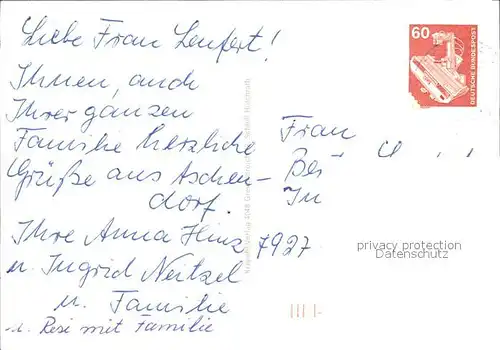 Liebe Frau Lenfert!
Ihnen, auch
Ihrer ganzen
Familie herzliche
Grüße aus Aschen-
dorf.
Ihre Anna Hinz
u. Ingrid Neitzel
u. Familie
u. Resi mit Familie
60
DEUTSCHE BUNDESPOST
Frau
Bei
In
7927
privacy protection
Datenschutz